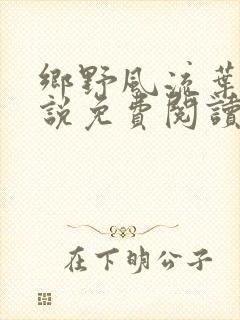 鄉野風流葉
說免費閱讀
在下明公子